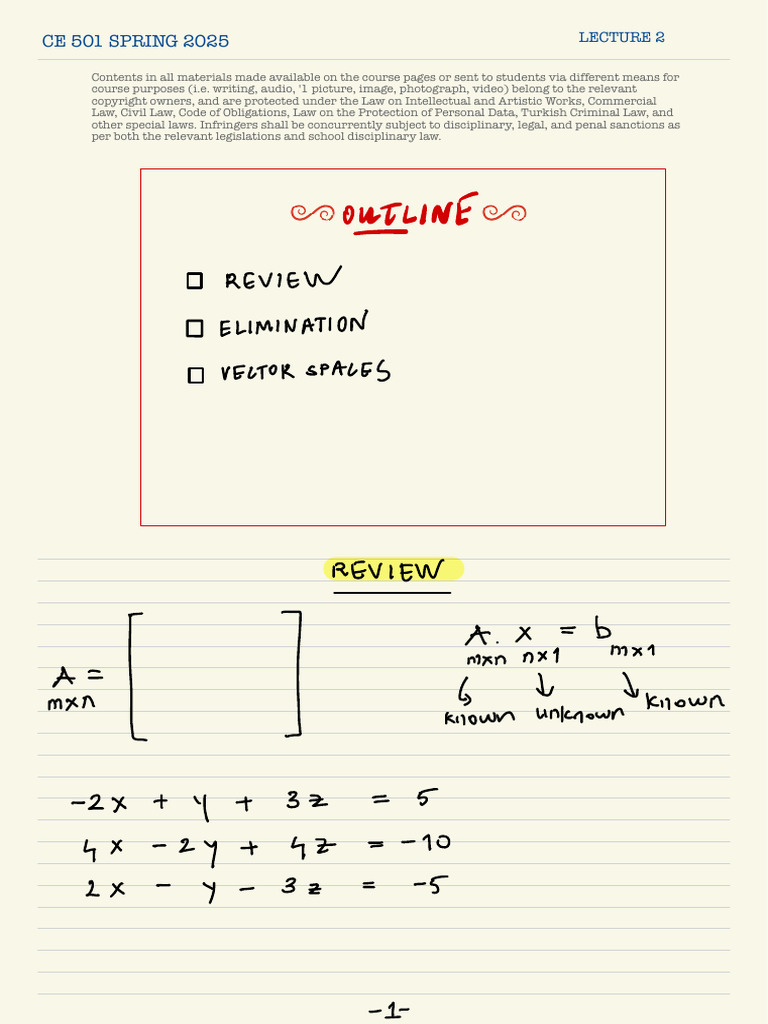 CE 501 SPRING 2025
LECTURE 2
Contents in all materials made available on the course pages or sent to students via different means for
course purposes (i.e. writing, audio, '1 picture, image, photograph, video) belong to the relevant
copyright owners, and are protected under the Law on Intellectual and Artistic Works, Commercial
Law, Civil Law, Code of Obligations, Law on the Protection of Personal Data, Turkish Criminal Law, and
other special laws. Infringers shall be concurrently subject to disciplinary, legal, and penal sanctions as
per both the relevant legislations and school disciplinary law.
OUTLINE
REVIEW
ELIMINATION
VECTOR SPACES
REVIEW
A =
mxn
A. x = b
mxn nx1 mx1
known unknown known
-2x + y + 3z = 5
4x - 2y + 4z = -10
2x - y - 3z = -5
-1-